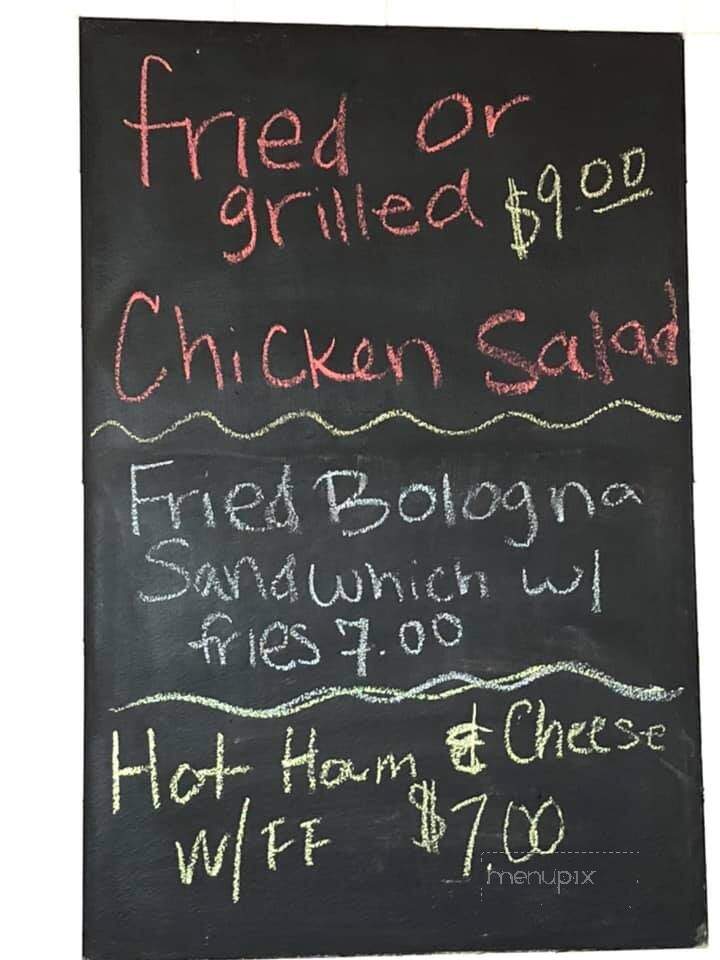 fried or
grilled $9.00
Chicken Salad
Fried Bologna
Sandwhich w/
fries 7.00
Hot Ham & Cheese
W/FF $7.00
menupix